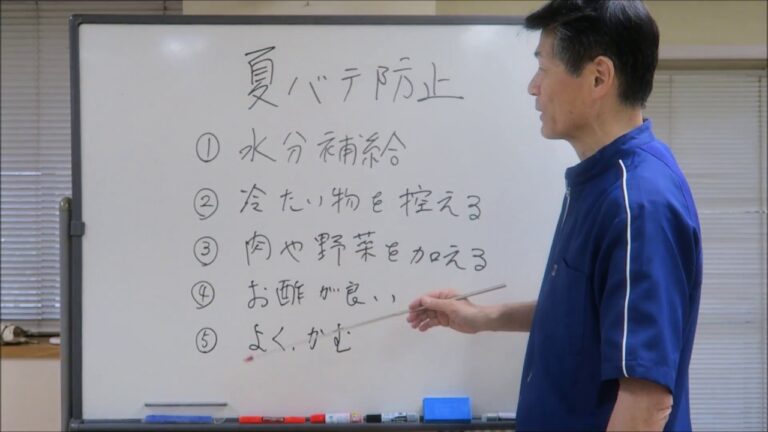 夏バテ防止
① 水分補給
② 冷たい物を控える
③ 肉や野菜を加える
④ お酢が良い
⑤ よく、かむ